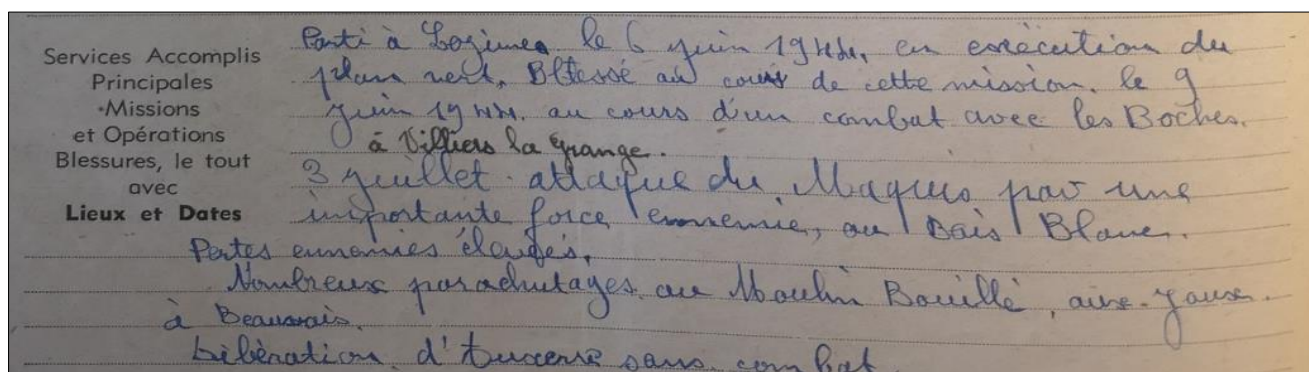 Services Accomplis
Principales
Missions
et Opérations
Blessures, le tout
avec
Lieux et Dates
Parti à Lezinnes le 6 juin 1944, en exécution du
plan vert. Blessé au cours de cette mission. le 9
Juin 1944. au cours d'un combat avec les Boches.
à Villiers la Grange.
3 juillet. attaque du Maquis par une
importante force ennemie, au Bois Blanc.
Pertes ennemies élevées.
Nombreux parachutages au Moulin Bouillé, aux
à Beauvais.
Libération d'Auxerre sans combat.